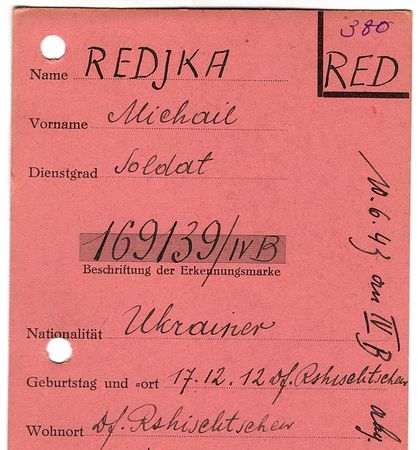 380
RED
Name REDJKA
Vorname Michail
Dienstgrad Soldat
169139/IV B
Beschriftung der Erkennungsmarke
Nationalität Ukrainer
Geburtstag und =ort 17.12.12 Df. Rshischtschew
Wohnort Df. Rshischtschew
10.6.43 an IV B abg.